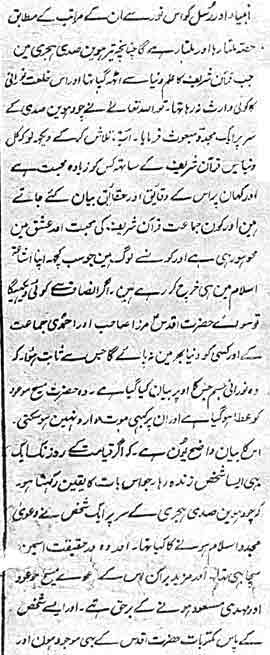 انبیاء اور رسل کو اس نور سے ان کے مراتب کے مطابق
حصہ ملتا رہا اور ملتا رہے گا چنانچہ تیرھوین صدی ہجری مین
جب قرآن شریف کا علم دنیا سے اٹھ گیا تھا اور اس خلعت نورانی
کا کوئی وارث نہ رہا تھا۔ تو اللہ تعالے نے چودھوین صدی کے
سر پر ایک مجدد مبعوث فرمایا۔ اب تلاش کر کے دیکھ لو کہ کل
دنیا مین قرآن شریف کے ساتھ کس کو زیادہ محبت ہے
اور کہان پر اس کے دقایق اور حقایق بیان کئے جاتے
ہین اور کون جماعت قرآن شریف کی محبت اور عشق مین
محو ہو رہی ہے اور کونسے لوگ ہین جو سب کچھ اپنا
اسلام مین ہی خرچ کر رہے ہین، اگر انصاف سے کوئی دیکھیگا
تو سوائے حضرت اقدس مرزا صاحب اور احمدی جماعت
کے اور کسی کو دنیا بھر مین نہ پائے گا جس سے ثابت ہوا کہ
وہ نورانی جسم جس کا اوپر بیان کیا گیا ہے۔ وہ حضرت مسیح موعود
کو عطا ہو گیا ہے اور ان پر کبھی موت وارد نہین ہو سکتی۔
اس کا بیان واضح یون ہے۔ کہ اگر قیامت کے روز تک ایک
بھی ایسا شخص زندہ رہا جو اس بات کا یقین رکھتا ہو۔
کہ چودھوین صدی ہجری کے سر پر ایک شخص نے دعوی
مجدد اسلام ہونے کا کیا تھا۔ اور وہ در حقیقت اسمین
سچا ہی تھا اور مزید بران اس کے دعوے مسیح موعود
اور مہدی مسعود ہونے کے برحق تھے۔ اور ایسے شخص
کے پاس کتب حضرت اقدس کے بھی موجود ہون اور